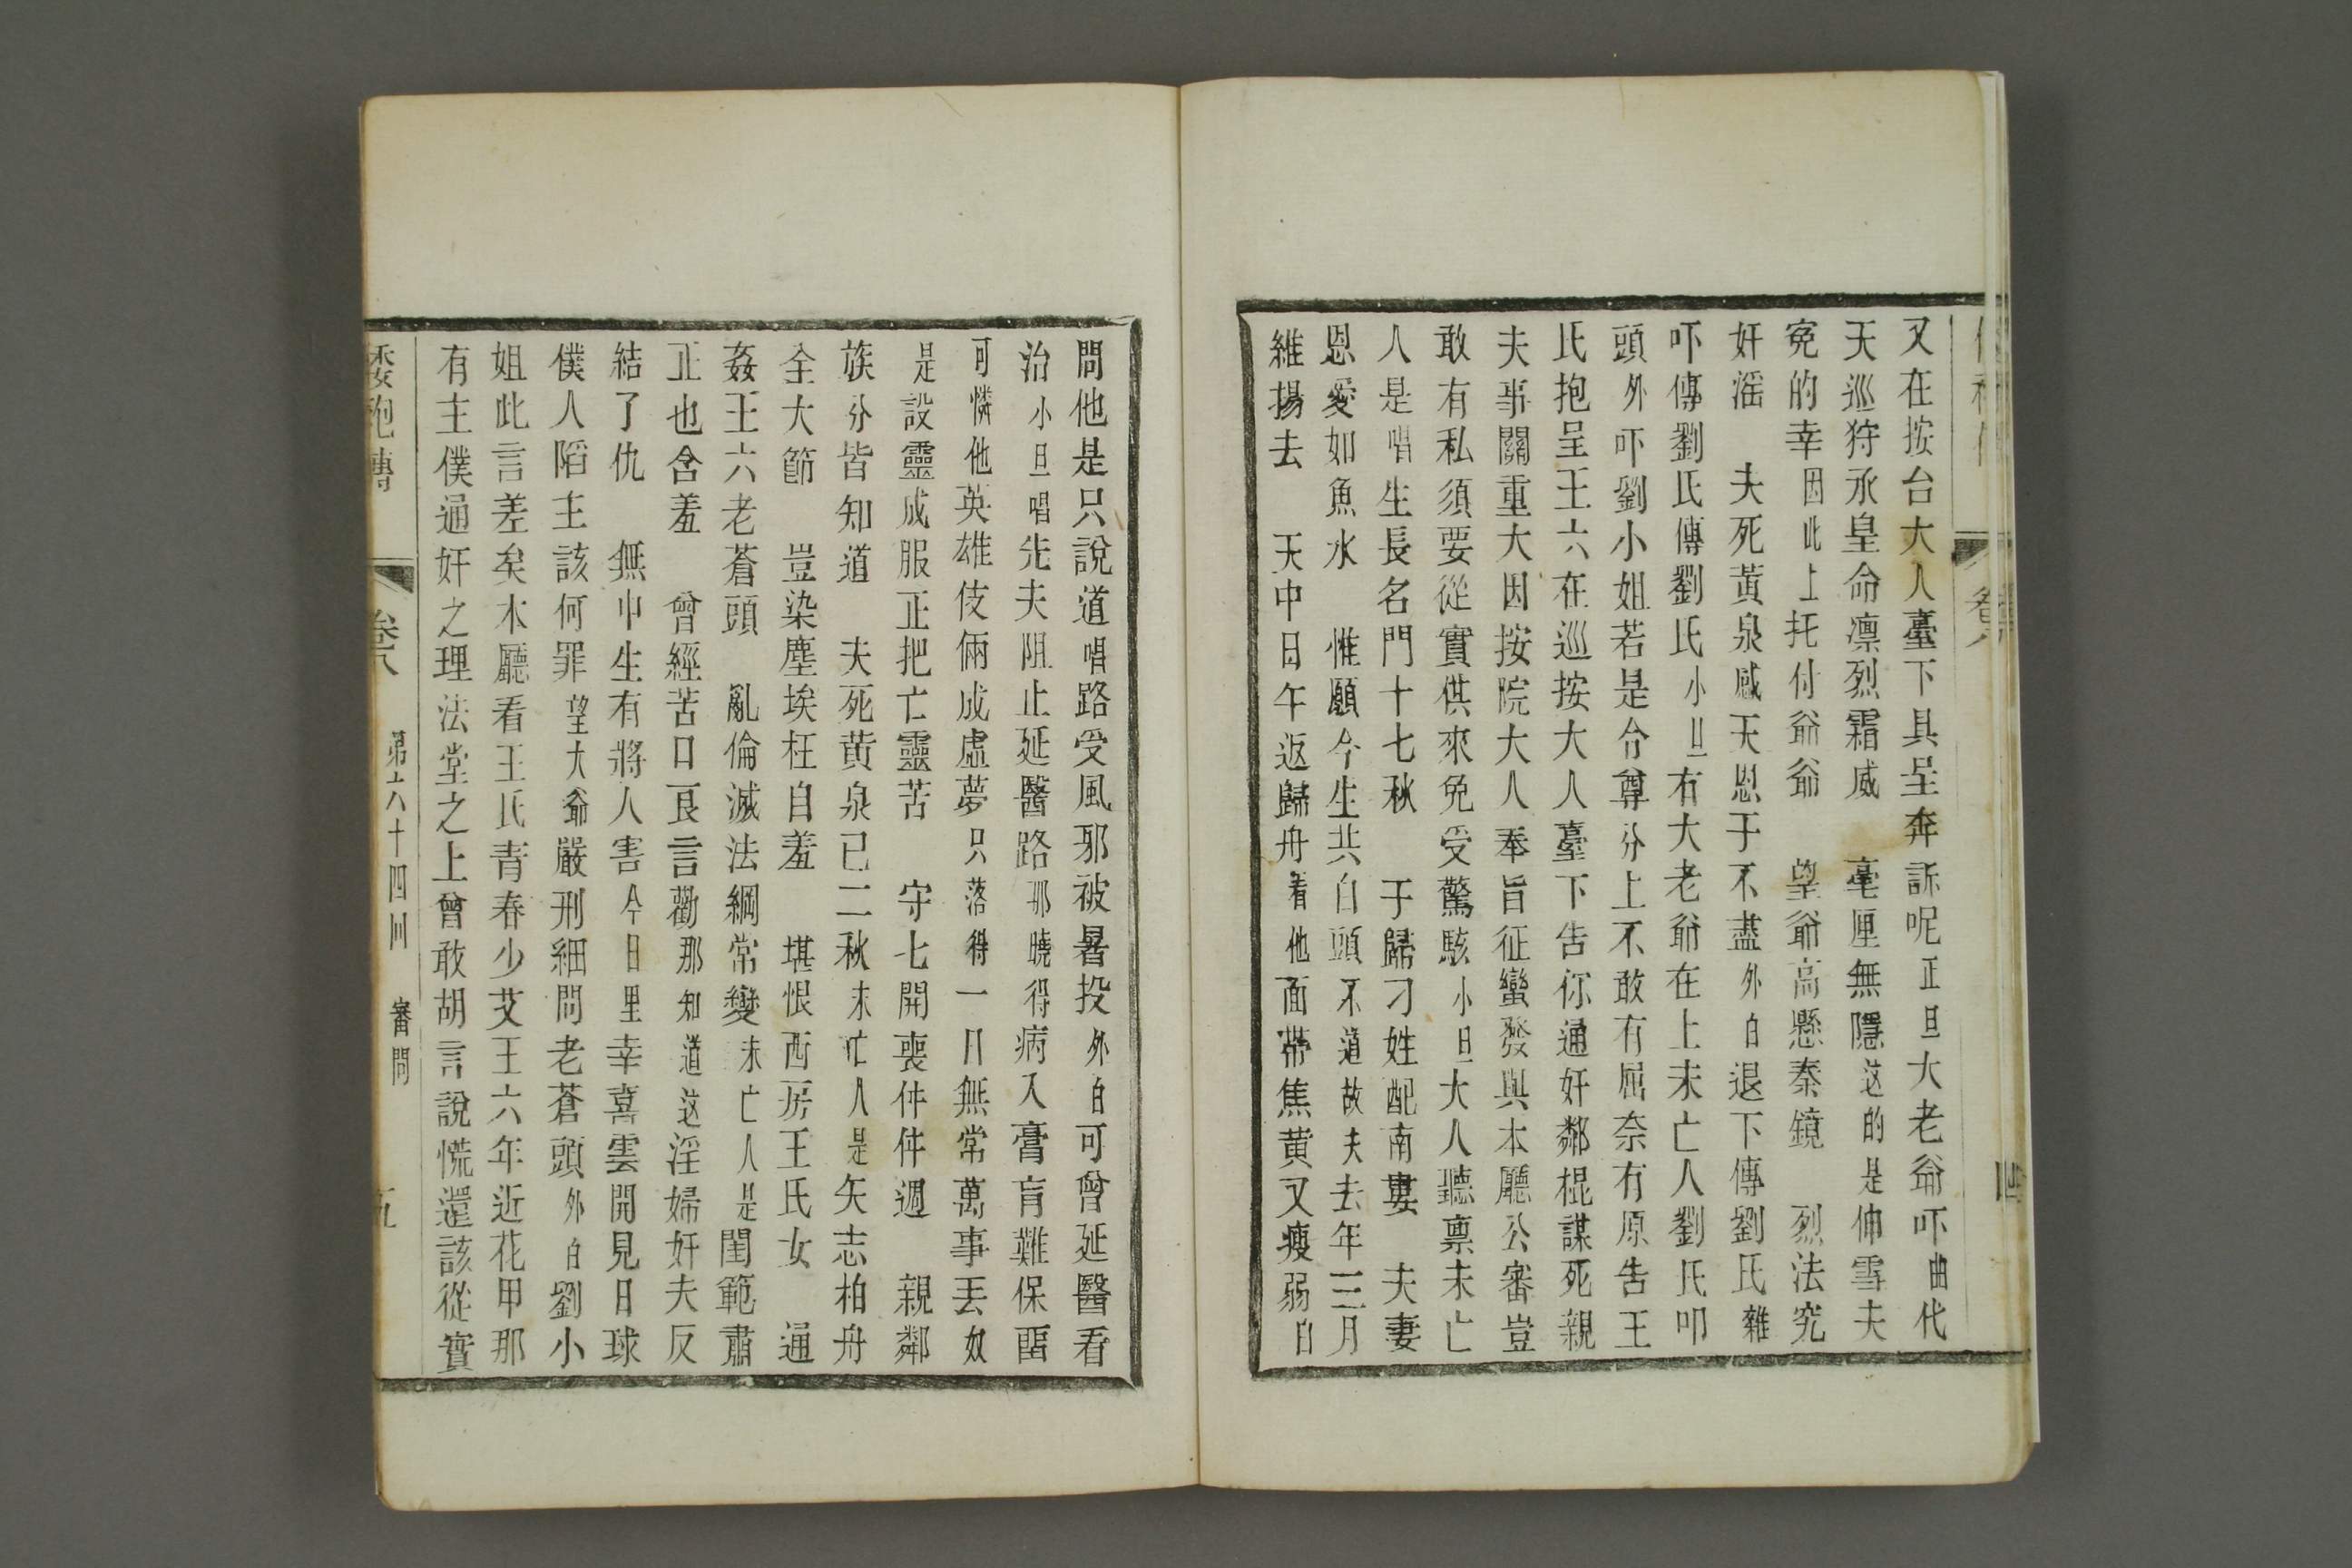 又在按台大人臺下具呈奔訴呢正旦大老爺吓曲代
天巡狩承皇命凛烈霜威 毫厘無隱这的是伸雪夫
寃的幸因此上托付爺爺 望爺高懸秦鏡 烈法究
奸滛 夫死黃泉感天恩于不盡外白退下傳劉氏雜
吓傳劉氏傳劉氏小旦有大老爺在上未亡人劉氏叩
頭外吓劉小姐若是令尊分上不敢有屈奈有原告王
氏抱呈王六在巡按大人臺下告你通奸鄰棍謀死親
夫事關重大因按院大人奉旨征蠻發與本廳公審豈
敢有私須要從實供來免受驚駭小旦大人聽禀未亡
人是唱生長名門十七秋 于歸刁姓配南婁 夫妻
恩愛如魚水 惟願今生共白頭不道故夫去年三月
維揚去 天中日午返歸舟看他面帶焦黄又瘦弱白
問他是只說道唱路受風邪被暑投外白可曾延醫看
治小旦唱先夫阻止延醫路那曉得病入膏肓難保畱
可憐他英雄伎倆成虛夢只落得一日無常萬事丟奴
是設靈成服正把亡靈苦 守七開喪件件週 親鄰
族分皆知道 夫死黄泉已二秋未亡人是矢志柏舟
全大節 豈染塵埃枉自羞 堪恨西房王氏女 通
姦王六老蒼頭 亂倫滅法綱常變未亡人是閨範肅
正也含羞 曾經苦口良言勸那知道这淫婦奸夫反
結了仇 無中生有將人害今日里幸喜雲開見日球
僕人陷主該何罪望大爺嚴刑細問老蒼頭外白劉小
姐此言差矣本廳看王氏青春少艾王六年近花甲那
有主僕通奸之理法堂之上曾敢胡言說慌還該從實
倭袍傳 卷八 第六十四囘 審問 五